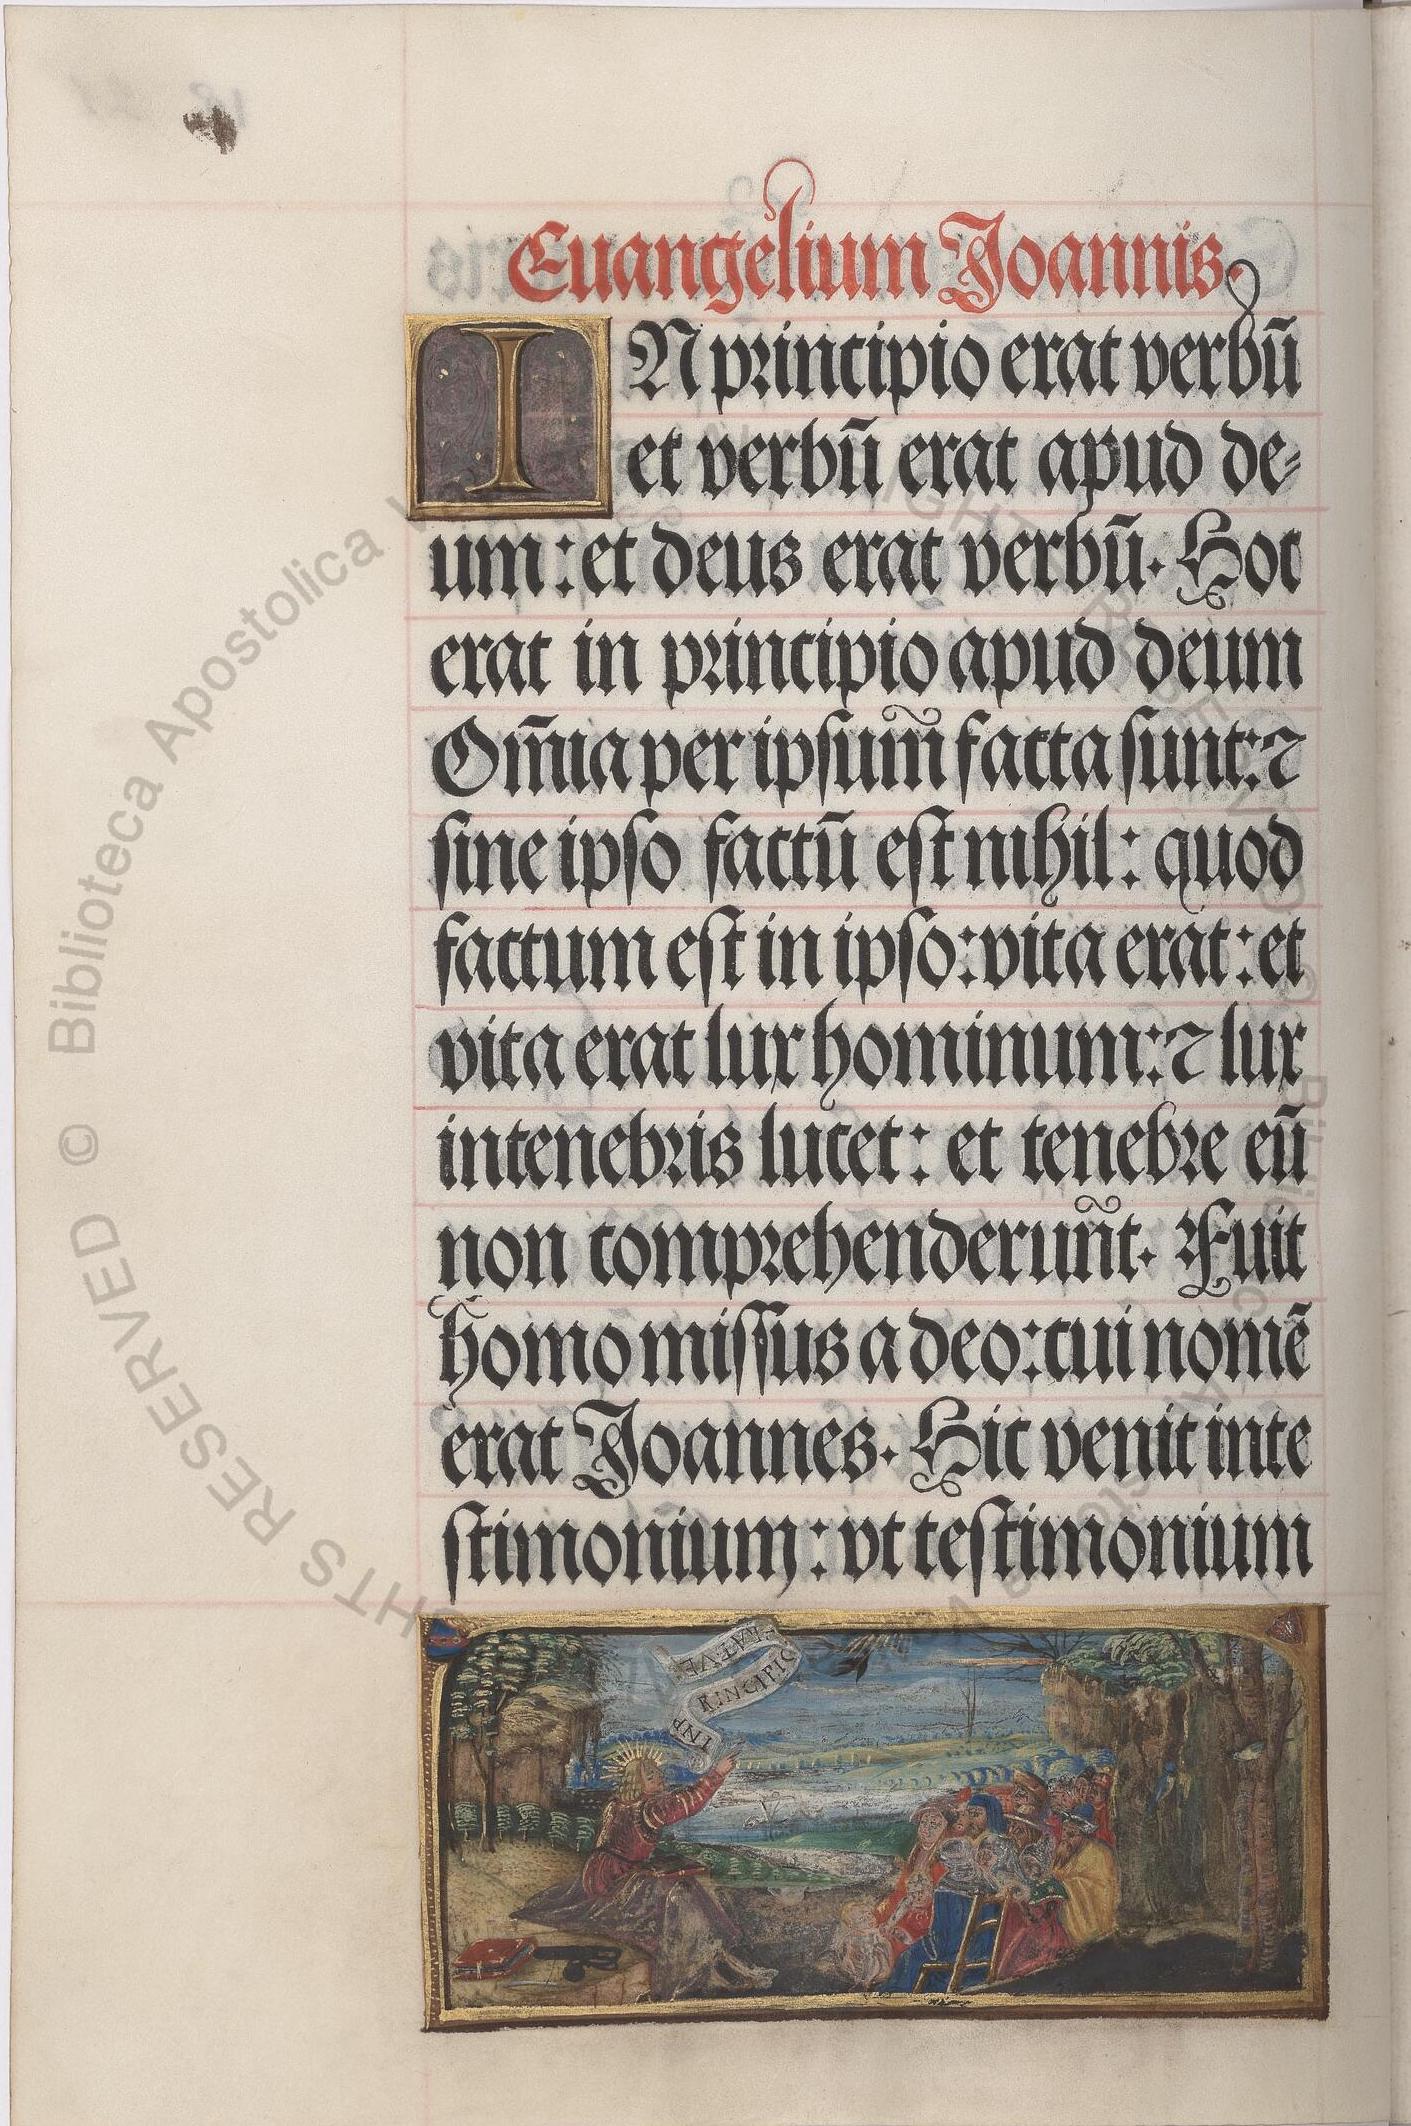 Euangelium Joannis.
IN principio erat verbū
et verbū erat apud de⸗
um: et deus erat verbū. Hoc
erat in principio apud deum
Om̄ia per ipsum̄ facta sunt: ⁊
sine ipso factū est nihil: quod
factum est in ipso: vita erat: et
vita erat lux hominum: ⁊ lux
in tenebris lucet: et tenebre eū
non comprehenderun̄t. Fuit
homo missus a deo: cui nomē
erat Joannes. Hic venit in te
stimonium: vt testimonium
ERAT VE
IN P RINCIPIO
© Biblioteca Apostolica V
GHTS RESERVED